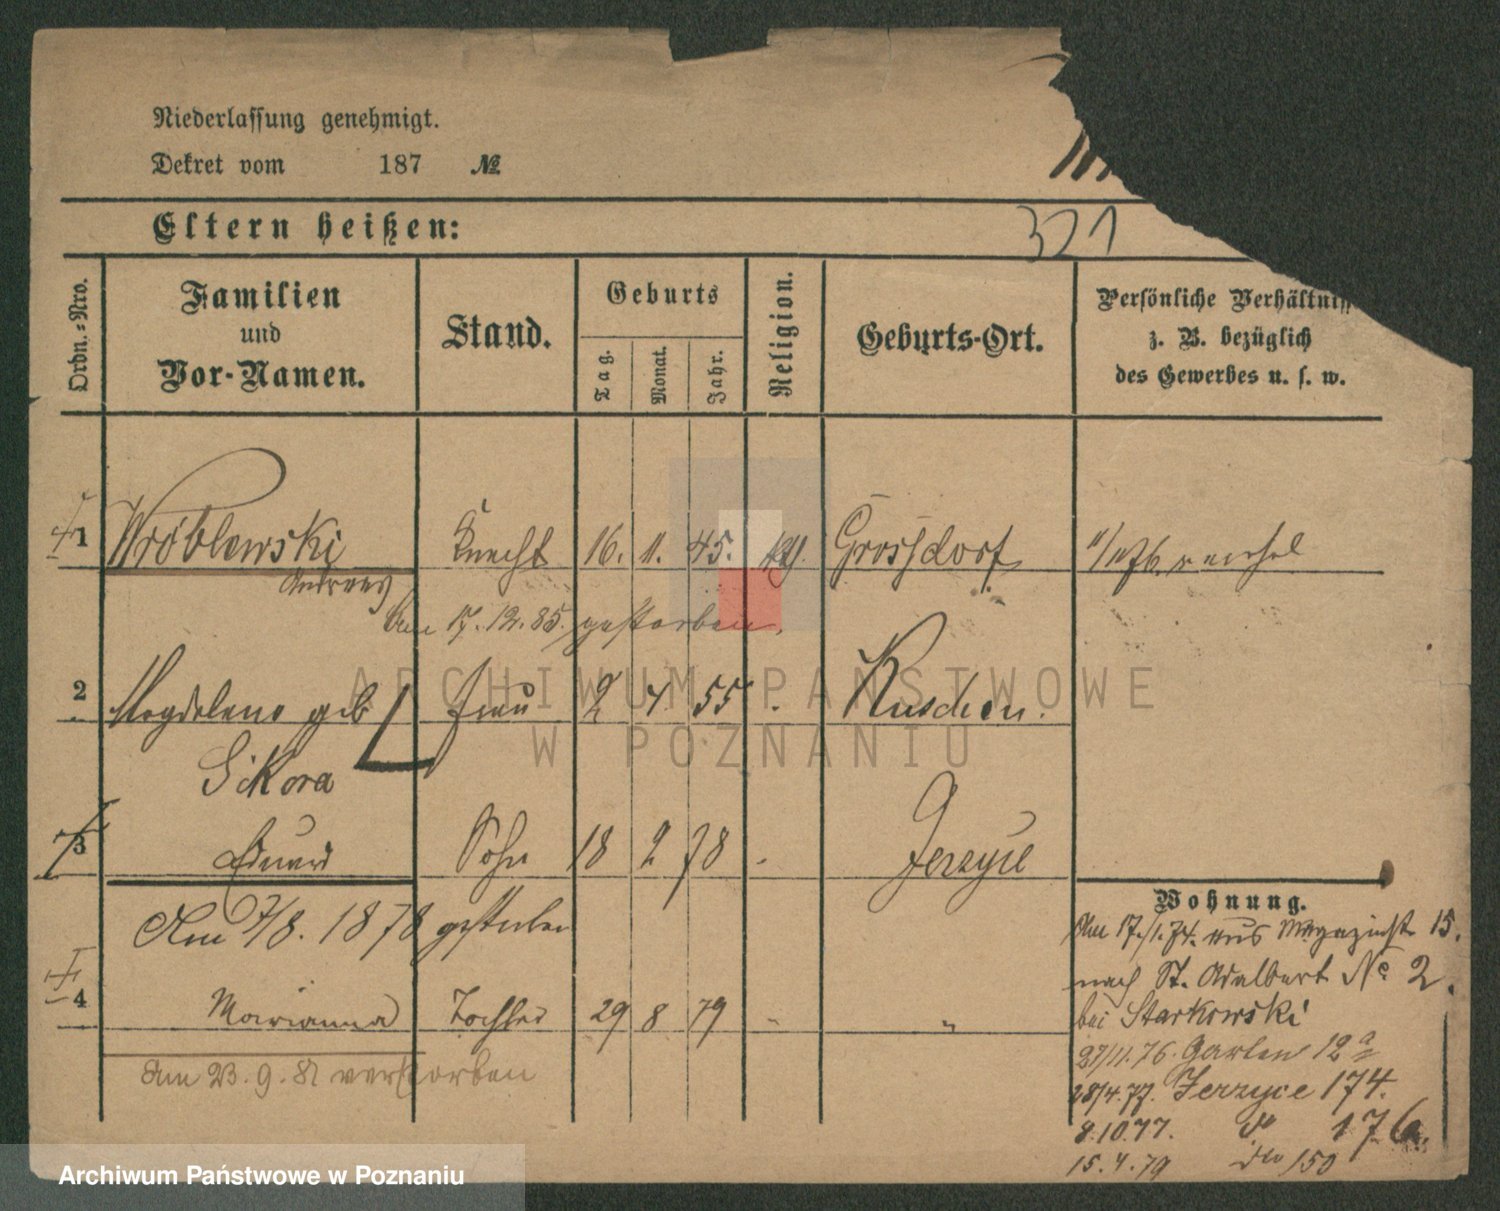 Niederlassung genehmigt.
Dekret vom 187 №
Eltern heißen:
321
Ordn.=Nro.
Familien und Vor-Namen.
Stand.
Geburts
Tag.
Monat.
Jahr.
Religion.
Geburts-Ort.
Persönliche Verhältniss
z. B. bezüglich
des Gewerbes u. s. w.
1 Wróblewski Knecht 16. 11. 45. kth. Grossdorf
Andreas
Am 17. 12. 85. gestorben.
2 Magdalena geb Frau 2 4 55 . Kuschen.
Sikora
3 Eduard Sohn 18 2 78 . Jerzyce
Am 7/8. 1878 gestorben
4 Marianna Tochter 29 8 79 " "
Am 23. 9. 81 verstorben
Wohnung.
Am 17./1.74. aus Magazinst 15.
nach St. Adalbert No 2.
bei Starkowski
27/11.76. Garten 12a
28/4.77. Jerzyce 174.
8.10.77. do 176.
15.4.79 dto 150
ARCHIWUM PAŃSTWOWE
W POZNANIU
Archiwum Państwowe w Poznaniu